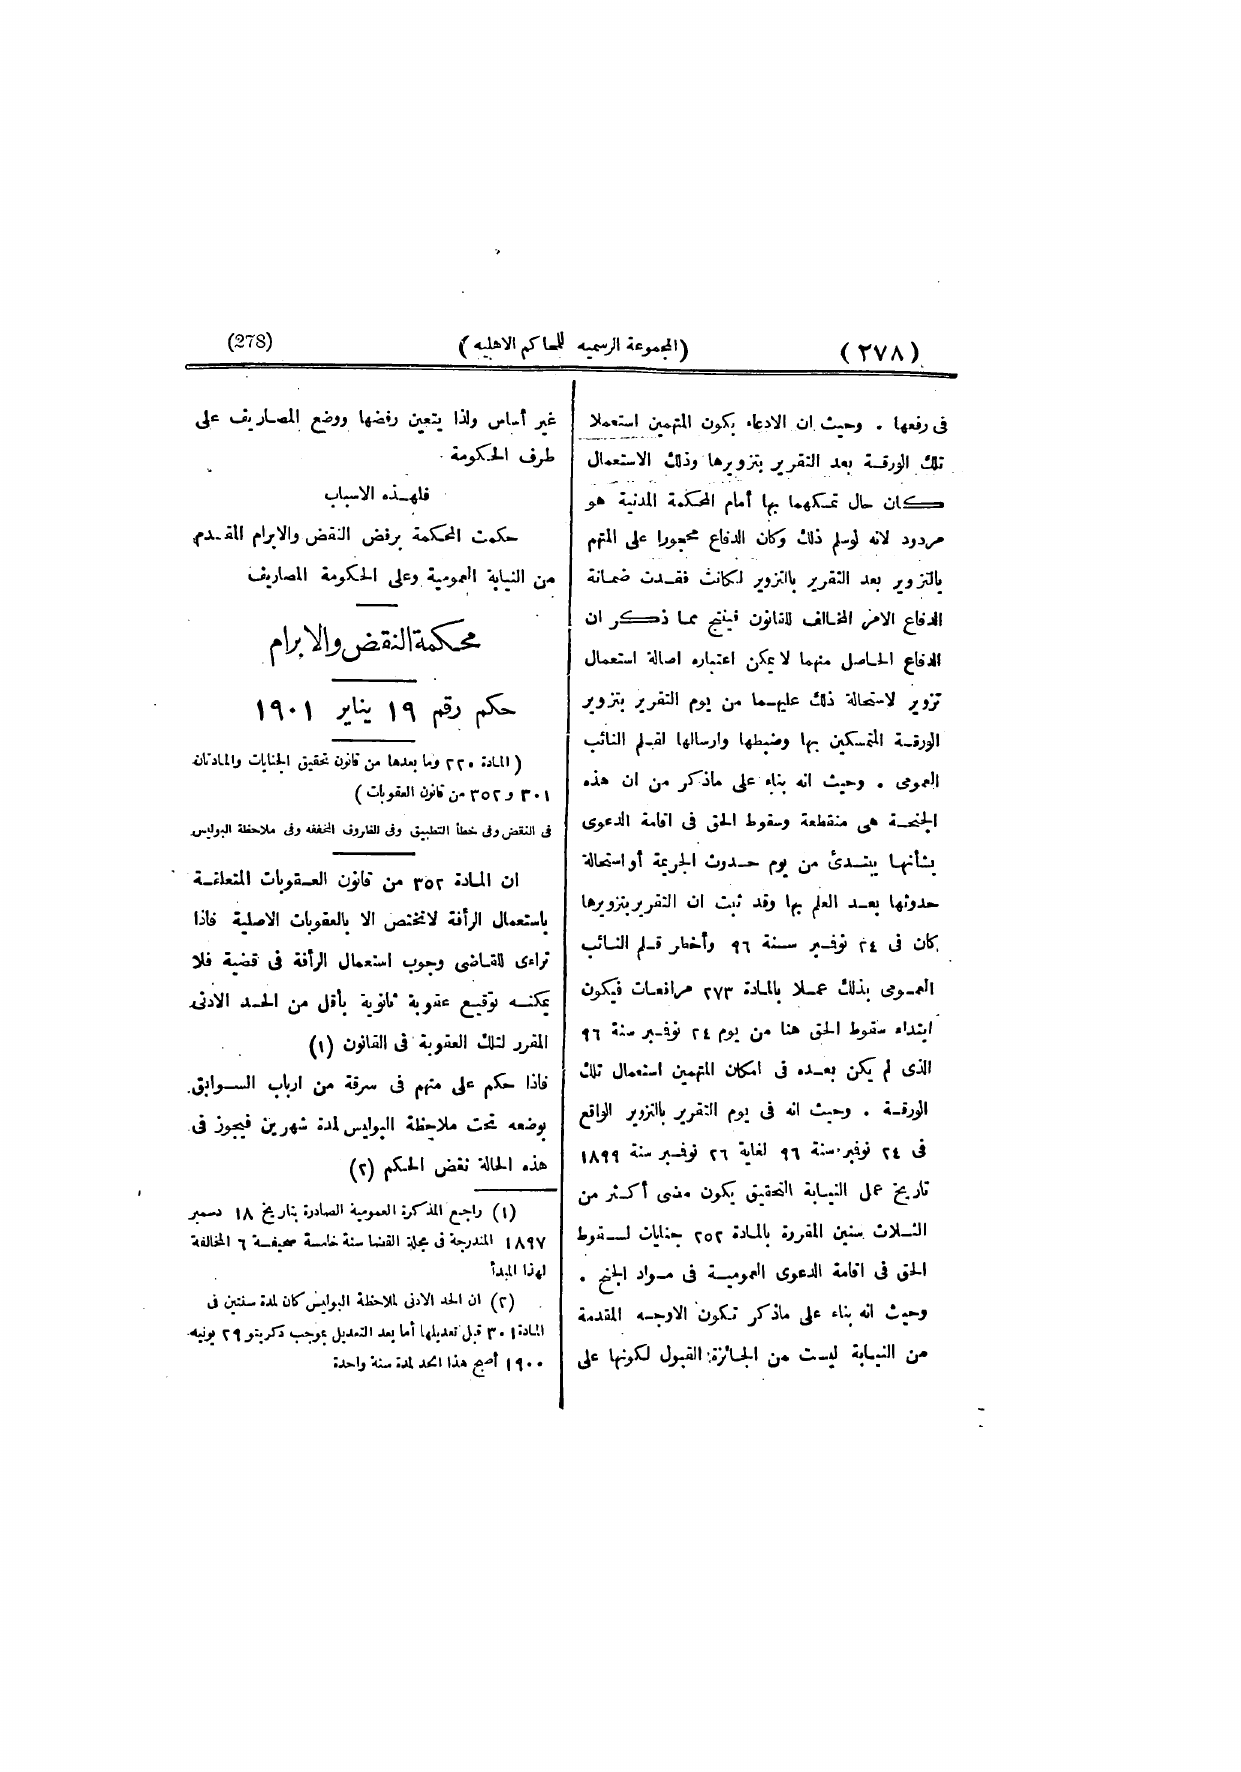 (٢٧٨)
(المجموعة الرسميه للمحاكم الاهليه)
(278)
فى رفعها . وحيث ان الادعاء بكون المتهمين استعملا
تلك الورقـة بعد التقرير بتزويرها وذلك الاستعمال
كان حال تمسكهما بها أمام المحكمة المدنية هو
مردود لانه لوسلم ذلك وكان الدفاع محجورا على المتهم
بالتزوير بعد التقرير بالتزوير لكانت فقدت ضمانة
الدفاع الامر المخالف للقانون فينتج مما ذكر ان
الدفاع الحاصل منهما لا يمكن اعتباره اصالة استعمال
تزوير لاستحالة ذلك عليهما من يوم التقرير بتزوير
الورقـة المتمسكين بها وضبطها وارسالها لقـلم النائب
العمومى . وحيث انه بناء على ماذكر من ان هذه
الجنحـة هى منقطعة وسقوط الحق فى اقامة الدعوى
بشأنها يبتدئ من يوم حدوث الجريمة أو استحالة
حدوثها بعـد العلم بها وقد ثبت ان التقرير بتزويرها
كان فى ٢٤ نوفمبر سـنة ٩٦ وأخطر قـلم النـائب
العمومى بذلك عملا بالمادة ٢٧٣ مرافعات فيكون
ابتداء سقوط الحق هنا من يوم ٢٤ نوفمبر سنة ٩٦
الذى لم يكن بعـده فى امكان المتهمين استعمال تلك
الورقـة . وحيث انه فى يوم التقرير بالتزوير الواقع
فى ٢٤ نوفمبر سنة ٩٦ لغاية ٢٦ نوفمبر سنة ١٨٩٩
تاريخ عمل النيـابة التحقيق يكون مضى أكثر من
الثـلاث سنين المقررة بالمادة ٢٥٢ جنايات لسـقوط
الحق فى اقامة الدعوى العموميـة فى مـواد الجنح .
وحيث انه بناء على ماذكر تـكون الاوجـه المقدمة
من النيـابة ليست من الجائزة القبول لكونها على
غير أساس ولذا يتعين رفضها ووضع المصاريف على
طرف الحكومة
فلهـذه الاسباب
حكمت المحكمة برفض النقض والابرام المقـدم
من النيابة العمومية وعلى الحكومة المصاريف
محكمة النقض والابرام
حكم رقم ١٩ يناير ١٩٠١
(المادة ٢٢٠ وما بعدها من قانون تحقيق الجنايات والمادتان
٣٠١ و ٣٥٢ من قانون العقوبات)
فى النقض وفى خطأ التطبيق وفى الظروف المخففه وفى ملاحظة البوليس
ان المادة ٣٥٢ من قانون العـقوبات المتعلقـة
باستعمال الرأفة لاتختص الا بالعقوبات الاصلية فاذا
تراءى للقـاضى وجوب استعمال الرأفة فى قضية فلا
يمكنـه توقيع عقوبة ثانوية بأقل من الحـد الادنى
المقرر لتلك العقوبة فى القانون (١)
فاذا حكم على متهم فى سرقة من ارباب السـوابق
بوضعه تحت ملاحظة البوليس لمدة شهرين فيجوز فى
هذه الحالة نقض الحكم (٢)
(١) راجع المذكرة العمومية الصادرة بتاريخ ١٨ دسمبر
١٨٩٧ المندرجة فى مجلة القضا سنة خامسة صحيفـة ٦ المخالفة
لهذا المبدأ
(٢) ان الحد الادنى لملاحظة البوليس كان لمدة سنتين فى
المادة ٣٠١ قبل تعديلها أما بعد التعديل بموجب دكريتو ٢٩ يونيه
١٩٠٠ أصبح هذا الحد لمدة سنة واحدة